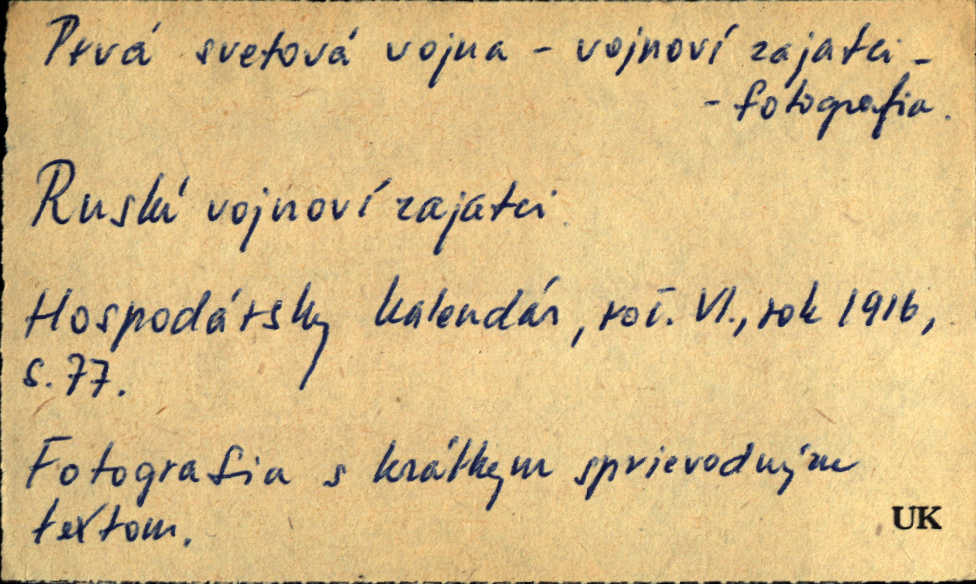 Prvá svetová vojna - vojnoví zajatci -
- fotografia.
Ruskí vojnoví zajatci
Hospodársky kalendár, roč. VI., rok 1916,
s. 77.
Fotografia s krátkym sprievodným
textom.
UK